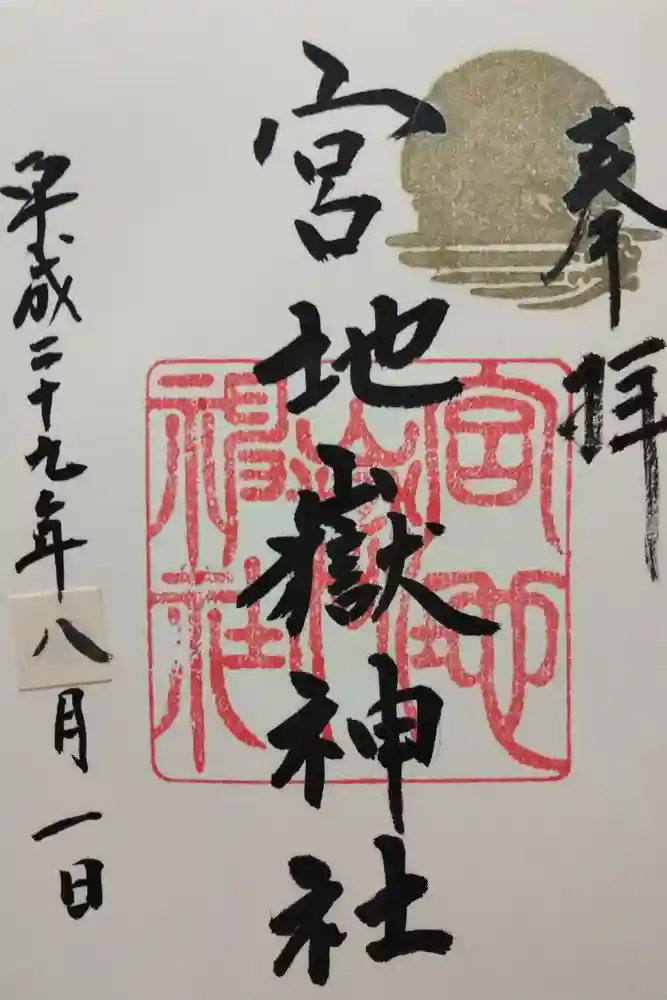 奉拝
宮地嶽神社
宮地嶽神社
平成二十九年八月一日